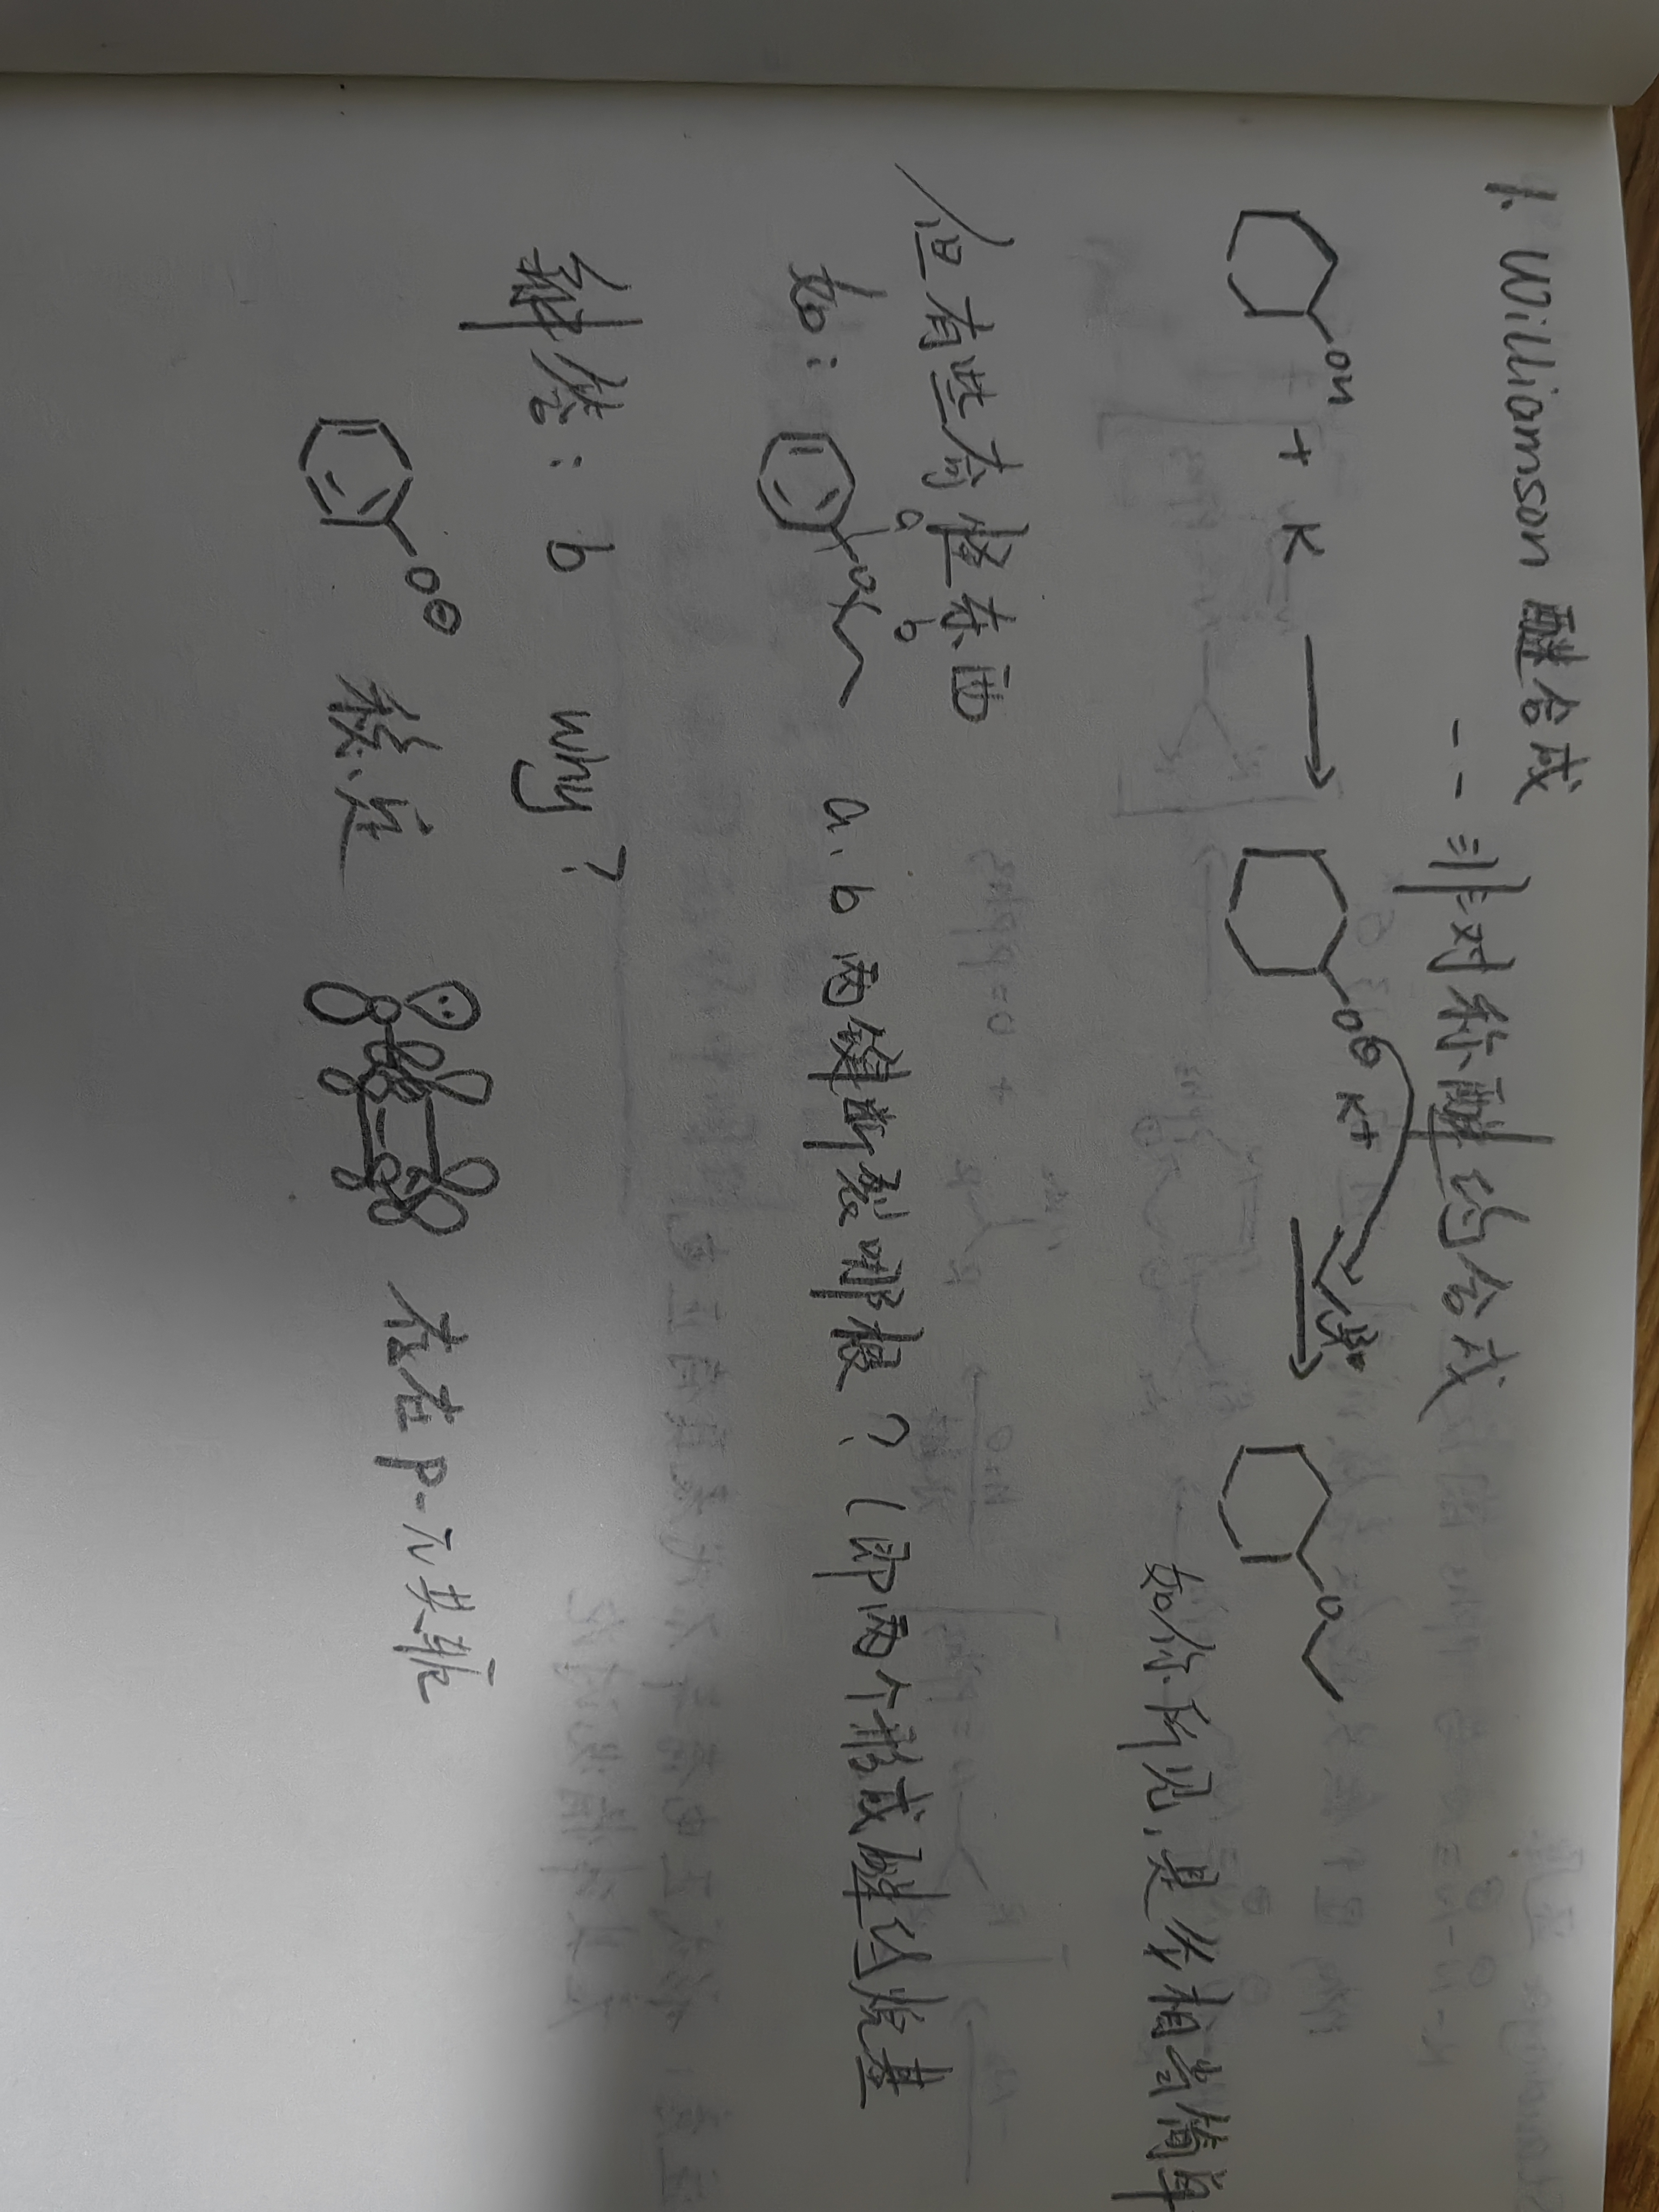 1. Williamson 醚合成
-- 非对称醚的合成
OH + K → O⊖ K+ → O
如你所见,是个相当简单
但有些奇怪东西
如: a O b a、b 两键断裂哪根?(即两个形成醚的烷基
解答: b why?
O⊖ 稳定 存在 p-π 共轭